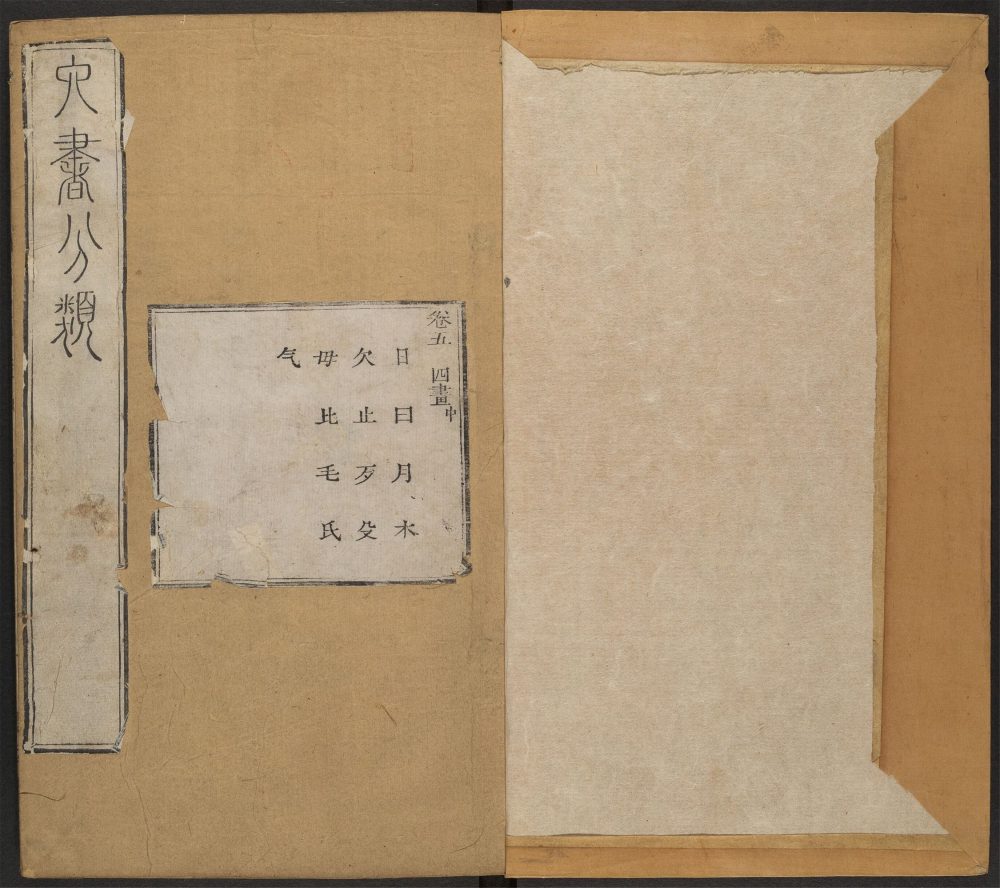 六書分類
卷五　四畫中
日曰月木
欠止歹殳
毋比毛氏
气